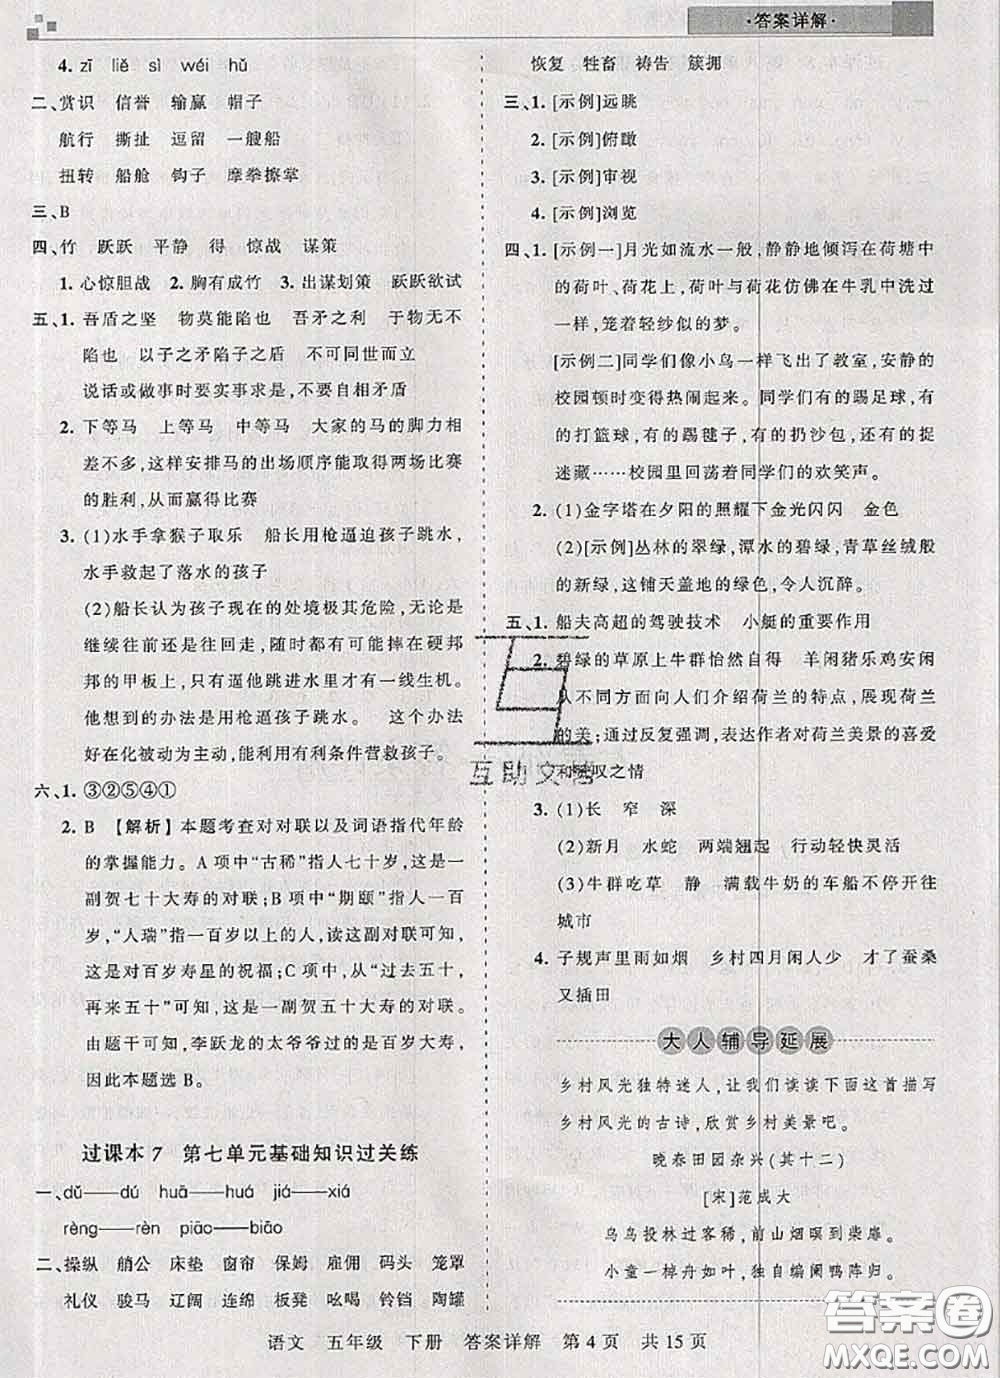 ·答案详解·
4. zī liě sì wéi hǔ
二、赏识 信誉 输赢 帽子
航行 撕扯 逗留 一艘船
扭转 船舱 钩子 摩拳擦掌
三、B
四、竹 跃跃 平静 得 惊战 谋策
1. 心惊胆战 2. 胸有成竹 3. 出谋划策 跃跃欲试
五、1. 吾盾之坚 物莫能陷也 吾矛之利 于物无不
陷也 以子之矛陷子之盾 不可同世而立
说话或做事时要实事求是,不要自相矛盾
2. 下等马 上等马 中等马 大家的马的脚力相
差不多,这样安排马的出场顺序能取得两场比赛
的胜利,从而赢得比赛
3. (1)水手拿猴子取乐 船长用枪逼迫孩子跳水,
水手救起了落水的孩子
(2)船长认为孩子现在的处境极其危险,无论是
继续往前走还是往回走,随时都有可能摔在硬邦
邦的甲板上,只有逼他跳进水里才有一线生机。
他想到的办法是用枪逼孩子跳水。 这个办法
好在化被动为主动,能利用有利条件营救孩子。
六、1. ③②⑤④①
2. B 【解析】本题考查对对联以及词语指代年龄
的掌握能力。A 项中“古稀”指人七十岁,这是一
副贺七十大寿的对联;B 项中“期颐”指人一百
岁,“人瑞”指一百岁以上的人,读这副对联可知,
这是对百岁寿星的祝福;C 项,从“过去五十,
再来五十”可知,这是一副贺五十大寿的对联。
由题干可知,李跃龙的太爷爷过的是百岁大寿,
因此本题选 B。
过课本 7 第七单元基础知识过关练
一、dǔ——dú huā——huá jiá——xiá
rèng——rèn piāo——biāo
二、操纵 艄公 床垫 窗帘 保姆 雇佣 码头 笼罩
礼仪 骏马 辽阔 连绵 板凳 吆喝 铃铛 陶罐
恢复 牲畜 祷告 簇拥
三、1. [示例]远眺
2. [示例]俯瞰
3. [示例]审视
4. [示例]浏览
四、1. [示例一]月光如流水一般,静静地倾泻在荷塘中
的荷叶、荷花上,荷叶与荷花仿佛在牛乳中洗过
一样,笼着轻纱似的梦。
[示例二]同学们像小鸟一样飞出了教室,安静的
校园顿时变得热闹起来。同学们有的踢足球,有
的打篮球,有的踢毽子,有的扔沙包,还有的捉
迷藏……校园里回荡着同学们的欢笑声。
2. (1)金字塔在夕阳的照耀下金光闪闪 金色
(2)[示例]丛林的翠绿,潭水的碧绿,青草丝绒般
的新绿,这铺天盖地的绿色,令人沉醉。
五、1. 船夫高超的驾驶技术 小艇的重要作用
2. 碧绿的草原上牛群怡然自得 羊闲猪乐鸡安闲
从不同方面向人们介绍荷兰的特点,展现荷兰
的美;通过反复强调,表达作者对荷兰美景的喜爱
和赞叹之情
3. (1)长 窄 深
(2)新月 水蛇 两端翘起 行动轻快灵活
(3)牛群吃草 静 满载牛奶的车船不停开往
城市
4. 子规声里雨如烟 乡村四月闲人少 才了蚕桑
又插田
大人辅导延展
乡村风光独特迷人,让我们读读下面这首描写
乡村风光的古诗,欣赏乡村美景吧。
晚春田园杂兴(其十二)
[宋]范成大
乌鸟投林过客稀,前山烟暝到柴扉。
小童一棹舟如叶,独自编阑鸭阵归。
互助文档
语文 五年级 下册 答案详解 第 4 页 共 15 页
答案圈
MXQE.COM